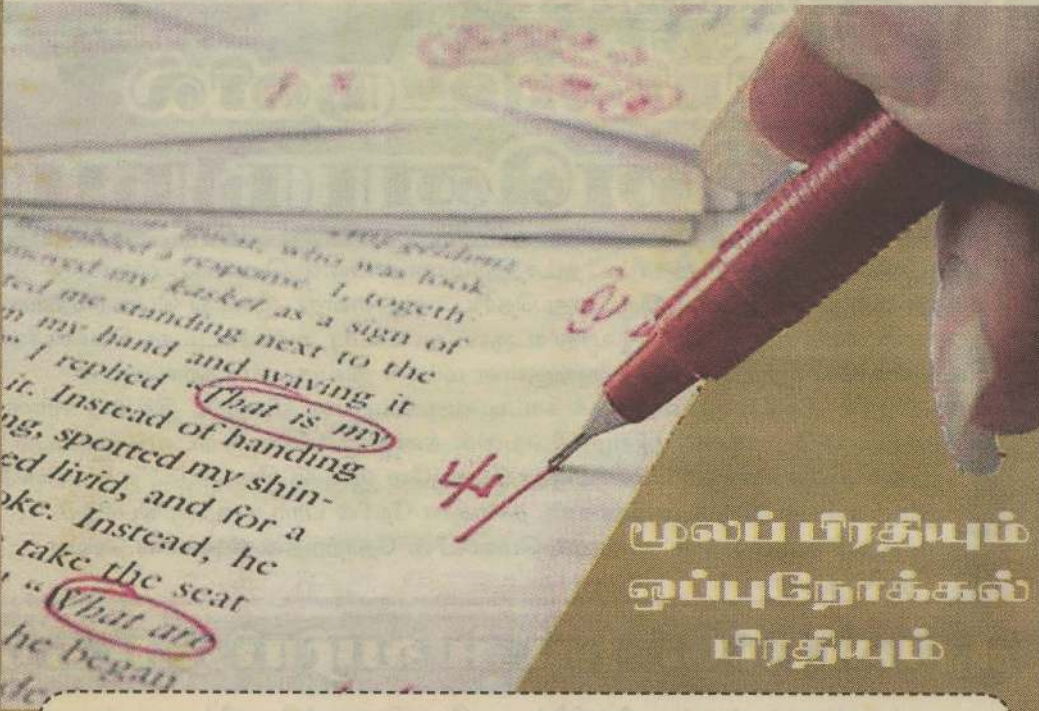 who was look
a response. I, togeth
my kasket as a sign of
ted me standing next to the
n my hand and waving it
" I replied "That is my
it. Instead of handing
ng, spotted my shin-
ed livid, and for a
oke. Instead, he
take the seat
"What are
he began
மூலப் பிரதியும்
ஒப்புநோக்கல்
பிரதியும்